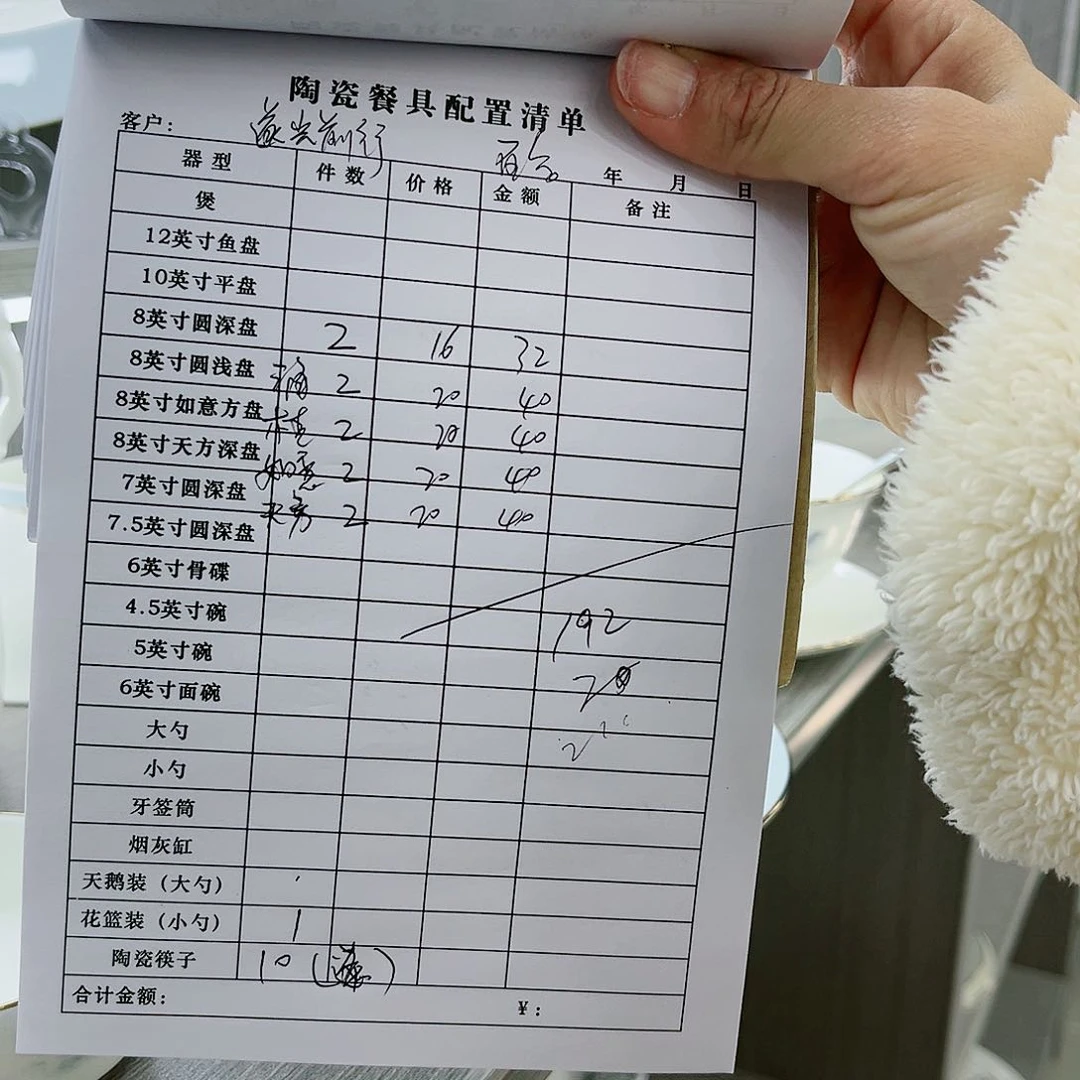 陶瓷餐具配置清单
客户：
年 月 日
器型 件数 价格 金额 备注
煲
12英寸鱼盘
10英寸平盘
8英寸圆深盘 2 16 32
8英寸圆浅盘 2 20 40
8英寸如意方盘 2 20 40
8英寸天方深盘 如意 2 20 40
7英寸圆深盘 天方 2 20 40
7.5英寸圆深盘
6英寸骨碟
4.5英寸碗 192
5英寸碗
6英寸面碗
大勺
小勺
牙签筒
烟灰缸
天鹅装（大勺）
花篮装（小勺） 1
陶瓷筷子 10
合计金额： ¥：